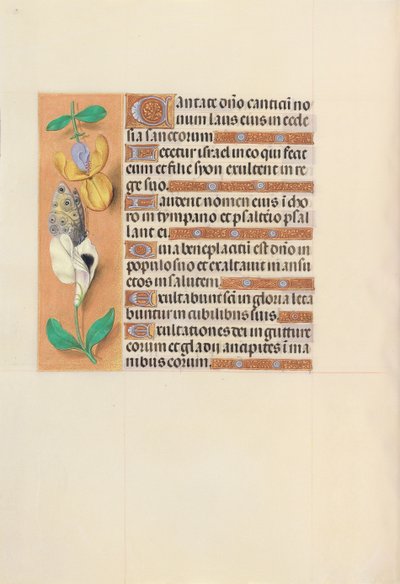 Cantate dño canticũ no
uum laus eius in eccle
sia sanctorum
Letetur israel in eo qui fecit
eum et filie syon exultent in re
ge suo.
Laudent nomen eius ĩ cho
ro in tympano et psalterio psal
lant ei.
Quia beneplacitũ est dño in
populo suo et exaltauit mansu
etos in salutem
Exultabunt sc̃i in gloria leta
buntur in cubilibus suis.
Exultationes dei in gutture
eorum et gladii ancipites ĩ ma
nibus eorum.